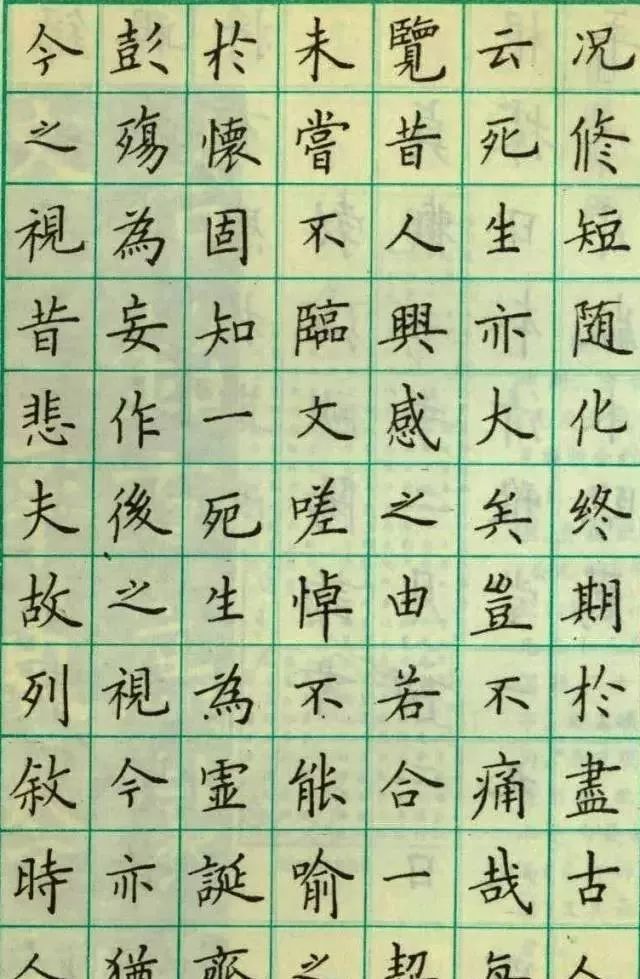 况修短随化終期於盡古人
云死生亦大矣豈不痛哉每
覽昔人興感之由若合一契
未嘗不臨文嗟悼不能喻之
於懷固知一死生為虛誕齊
彭殤為妄作後之視今亦猶
今之視昔悲夫故列敘時人